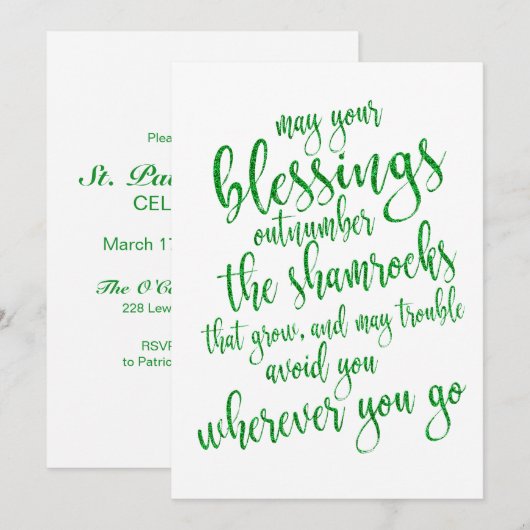 may your
blessings
outnumber
the shamrocks
that grow, and may trouble
avoid you
wherever you go
Please
St.
March 17
The
228
RSVP
to